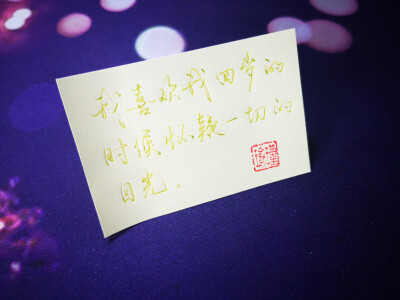 我喜欢我四岁的
时候怀疑一切的
目光。